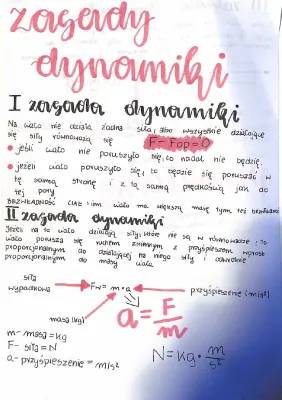 zasady
dynamiki
I zasada dynamiki
Na ciało nie działa żadna siła, albo wszystkie działające
się siły równoważą się F - Fop = 0
• jeśli ciało nie poruszyło się, to nadal nie będzie.
• jeżeli ciało poruszyło się, to będzie się poruszać w
tę samą stronę i z tą samą prędkością jak do
tej pory
BEZWŁADNOŚĆ CIAŁ: im ciało ma większą masę tym jest bezwładne
II zasada dynamiki
Jeżeli na to ciało działają siły, które nie są w równowadze, to
ciało porusza się ruchem zmiennym z przyśpieszeniem wprost
proporcjonalnym do działającej na niego siły i odwrotnie
proporcjonalnym do masy ciała
siła
wypadkowa Fw = m·a przyśpieszenie [m/s²]
masa [kg]
a = F/m
m - masa = kg
F - siła = N
a - przyśpieszenie = m/s²
N = kg · m/s²